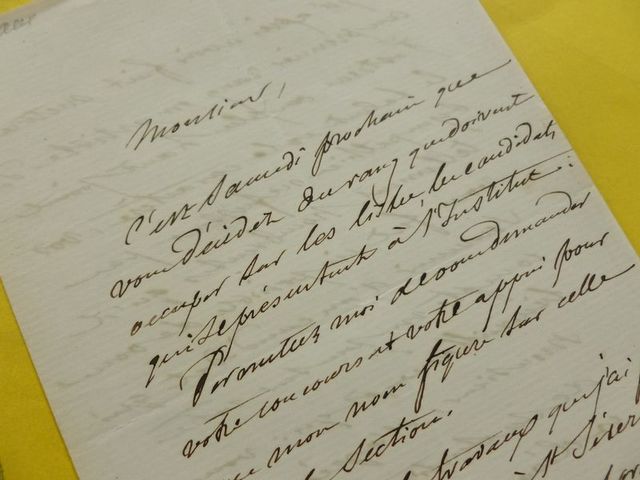 Monsieur,
C'est Samedi prochain que
vous décidez du rang que doivent
occuper sur les listes les candidats
qui se présentent à l'Institut.
Permettez moi de vous demander
votre concours et votre appui pour
que mon nom figure sur celle
Section.
travaux que j'ai